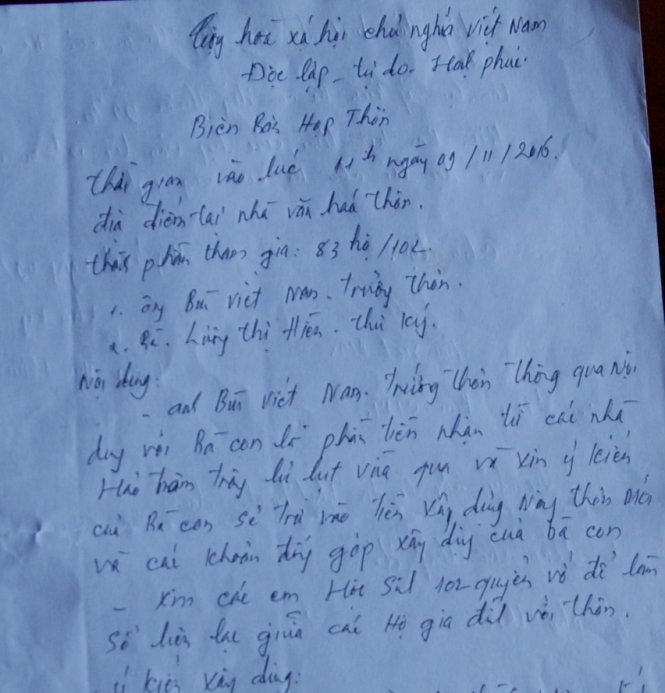 Cộng hoà xã hội chủ nghĩa việt Nam
Độc lập - tự do. Hạnh phúc.
Biên Bản Họp Thôn
thời gian vào lúc 11h ngày 09/11/2016.
địa điểm tại nhà văn hoá thôn.
thành phần tham gia: 83 hộ/102.
1. ông Bùi Việt Nam. Trưởng thôn.
2. Bà. Lương thị Hiền. thư ký.
Nội dung:
- anh Bùi Việt Nam. Trưởng thôn thông qua Nội
dung với Bà con là phần tiền nhận từ các nhà
Hảo tâm trong lũ lụt vừa qua và xin ý kiến
của Bà con sẽ trừ vào tiền xây dựng thôn
và các khoản đóng góp xây dựng của bà con
- xin các em Học Sinh 102 quyển vở để làm
sổ liên lạc giữa các Hộ gia đình với thôn.
ý kiến xây dựng: